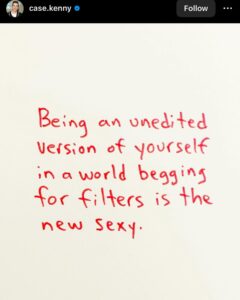 case.kenny
Follow
Being an unedited
version of yourself
in a world begging
for filters is the
new sexy.